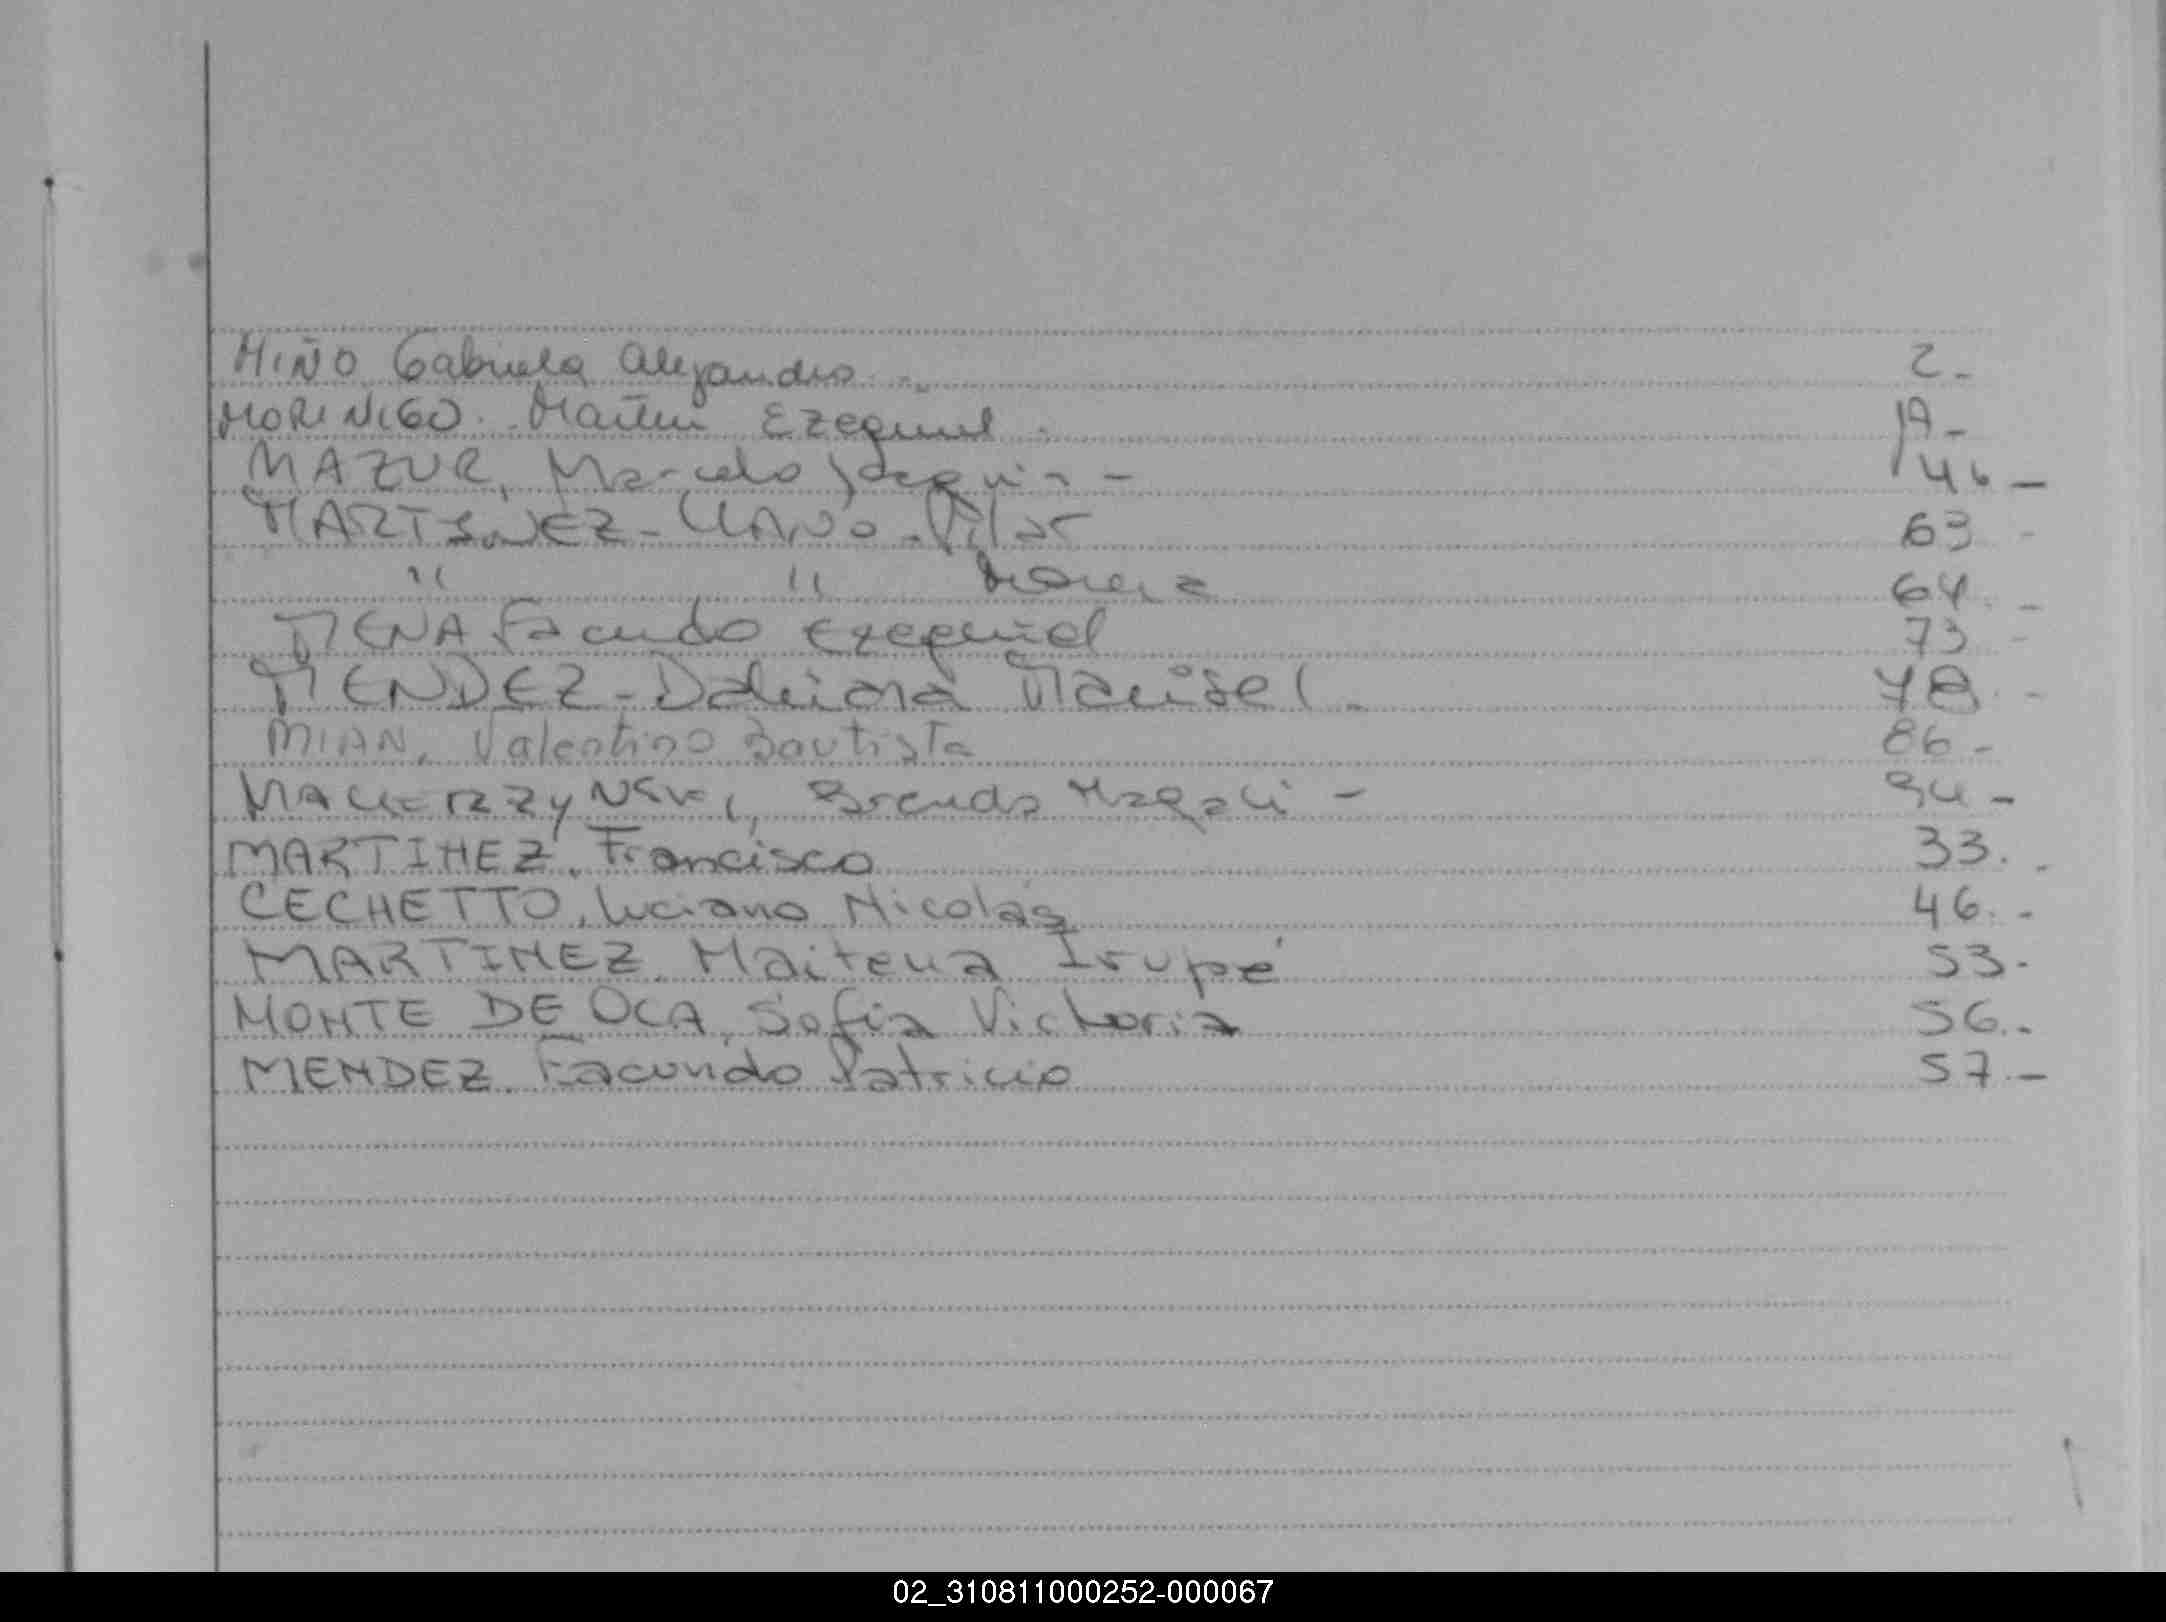 MIÑO Gabriela Alejandra 2-
MORINIGO. Martin Ezequiel. 19-
MAZUR, Marcelo Joaquin - 46-
MARTINEZ - LLANO - Pilar 63-
" " Morena 64-
MENA Facundo Ezequiel 73-
MENDEZ - Daliana Marisel. 78-
MIAN, Valentino Bautista 86-
Brenda Magali - 94-
MARTINEZ, Francisco 33.-
CECHETTO, Luciano Nicolás 46.-
MARTINEZ Maitena Irupé 53-
MONTE DE OCA, Sofia Victoria 56.-
MENDEZ Facundo Patricio 57.-
02_310811000252-000067